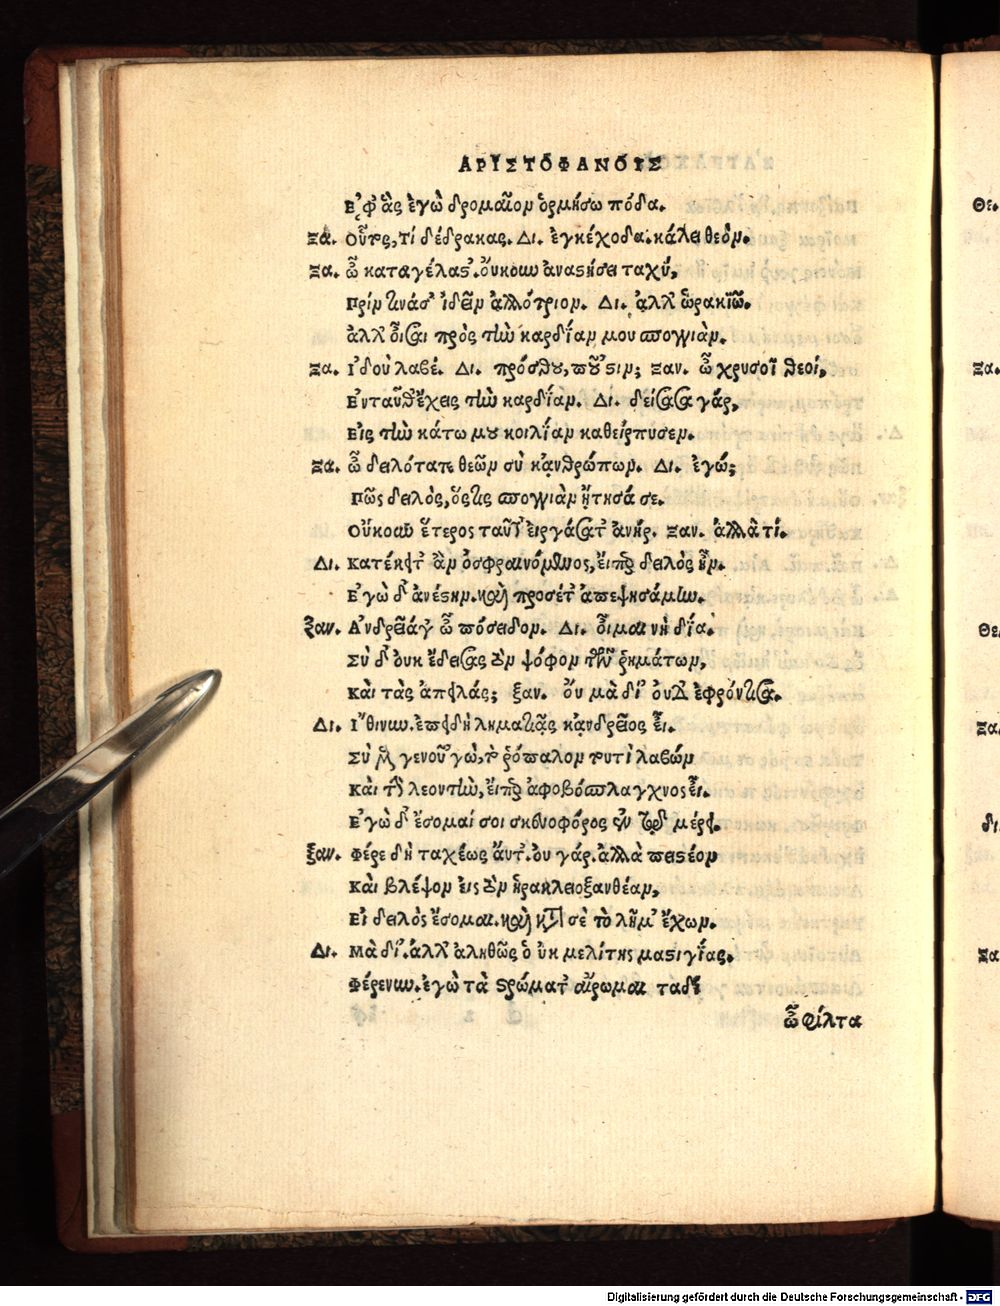 ΑΡΙΣΤΟΦΑΝΟΥΣ
Ἐφ' ἃς ἐγὼ δρομαῖον ὁρμήσω πόδα.
Ξα. Οὗτος, τί δέδρακας. Δι. ἐγκέχοδα. κάλει θεόν.
Ξα. ὦ καταγέλαστ'. οὔκουν ἀναστήσει ταχύ,
Πρίν τινάς σ' ἰδεῖν ἀλλότριον. Δι. ἀλλ' ὡρακιῶ.
ἀλλ' οἶσαι πρὸς τὴν καρδίαν μου σπογγιὰν.
Ξα. Ἰδοὺ λαβέ. Δι. πρόσθου, ποῦ 'στιν; Ξαν. ὦ χρυσοῖ θεοί,
Ἐνταῦθ' ἔχεις τὴν καρδίαν. Δι. δείσασα γάρ,
Εἰς τὴν κάτω μου κοιλίαν καθείρπυσεν.
Ξα. ὦ δειλότατε θεῶν σὺ κἀνθρώπων. Δι. ἐγώ;
Πῶς δειλὸς, ὅστις σπογγιὰν ᾔτησά σε.
Οὔκουν ἕτερος ταῦτ' εἰργάσατ' ἀνήρ. Ξαν. ἀλλὰ τί.
Δι. Κατέκειτ' ἂν ὀσφραινόμενος, εἴπερ δειλὸς ἦν.
Ἐγὼ δ' ἀνέστην. καὶ προσέτ' ἀπεψησάμην.
Ξαν. Ἀνδρεῖά γ' ὦ πόσειδον. Δι. οἶμαι νὴ δία.
Σὺ δ' οὐκ ἔδεισας τὸν ψόφον τῶν ῥημάτων,
Καὶ τὰς ἀπειλάς; ξαν. οὐ μὰ δί' οὐδ' ἐφρόντισα.
Δι. Ἴθι νυν. ἐπειδὴ ληματιᾷς κἀνδρεῖος εἶ.
Σὺ μὲν γενοῦ 'γώ, τὸ ῥόπαλον τουτὶ λαβών
Καὶ τὴν λεοντῆν, εἴπερ ἀφοβόσπλαγχνος εἶ.
Ἐγὼ δ' ἔσομαί σοι σκευοφόρος ἐν τῷ μέρει.
Ξαν. Φέρε δὴ ταχέως αὔτ'. οὐ γάρ. ἀλλὰ πειστέον
Καὶ βλέψον εἰς τὸν ἡρακλειοξανθίαν,
Εἰ δειλὸς ἔσομαι. καὶ κατὰ σὲ τὸ λῆμ' ἔχων.
Δι. Μὰ δί'. ἀλλ' ἀληθῶς ὁ ὐκ μελίτης μαστιγίας.
Φέρε νυν. ἐγὼ τὰ στρώματ' αἴρωμαι ταδί
ὦ φίλτα
Θε.
Ξα.
Θε
Ξα
δι.
Ξα
Digitalisierung gefördert durch die Deutsche Forschungsgemeinschaft - DFG